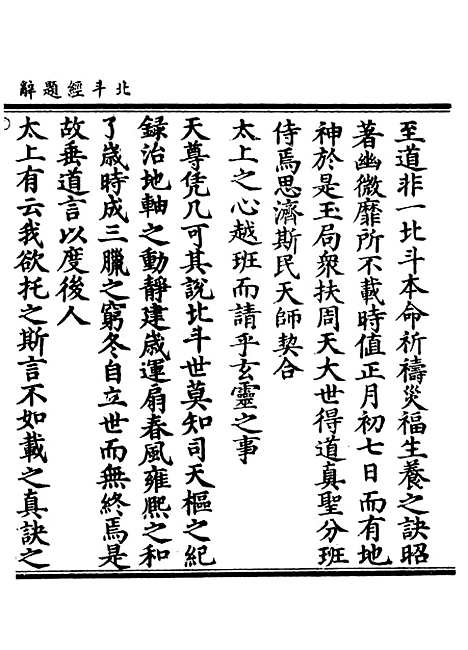 北斗經題辭
至道非一北斗本命祈禱災福生養之訣昭
著幽微靡所不載時值正月初七日而有地
神於是玉局衆扶周天大世得道真聖分班
侍焉思濟斯民天師契合
太上之心越班而請乎玄靈之事
天尊凭几可其說北斗世莫知司天樞之紀
録治地軸之動靜建歳運扇春風雍熈之和
了歳時成三臘之窮冬自立世而無終焉是
故垂道言以度後人
太上有云我欲托之斯言不如載之真訣之